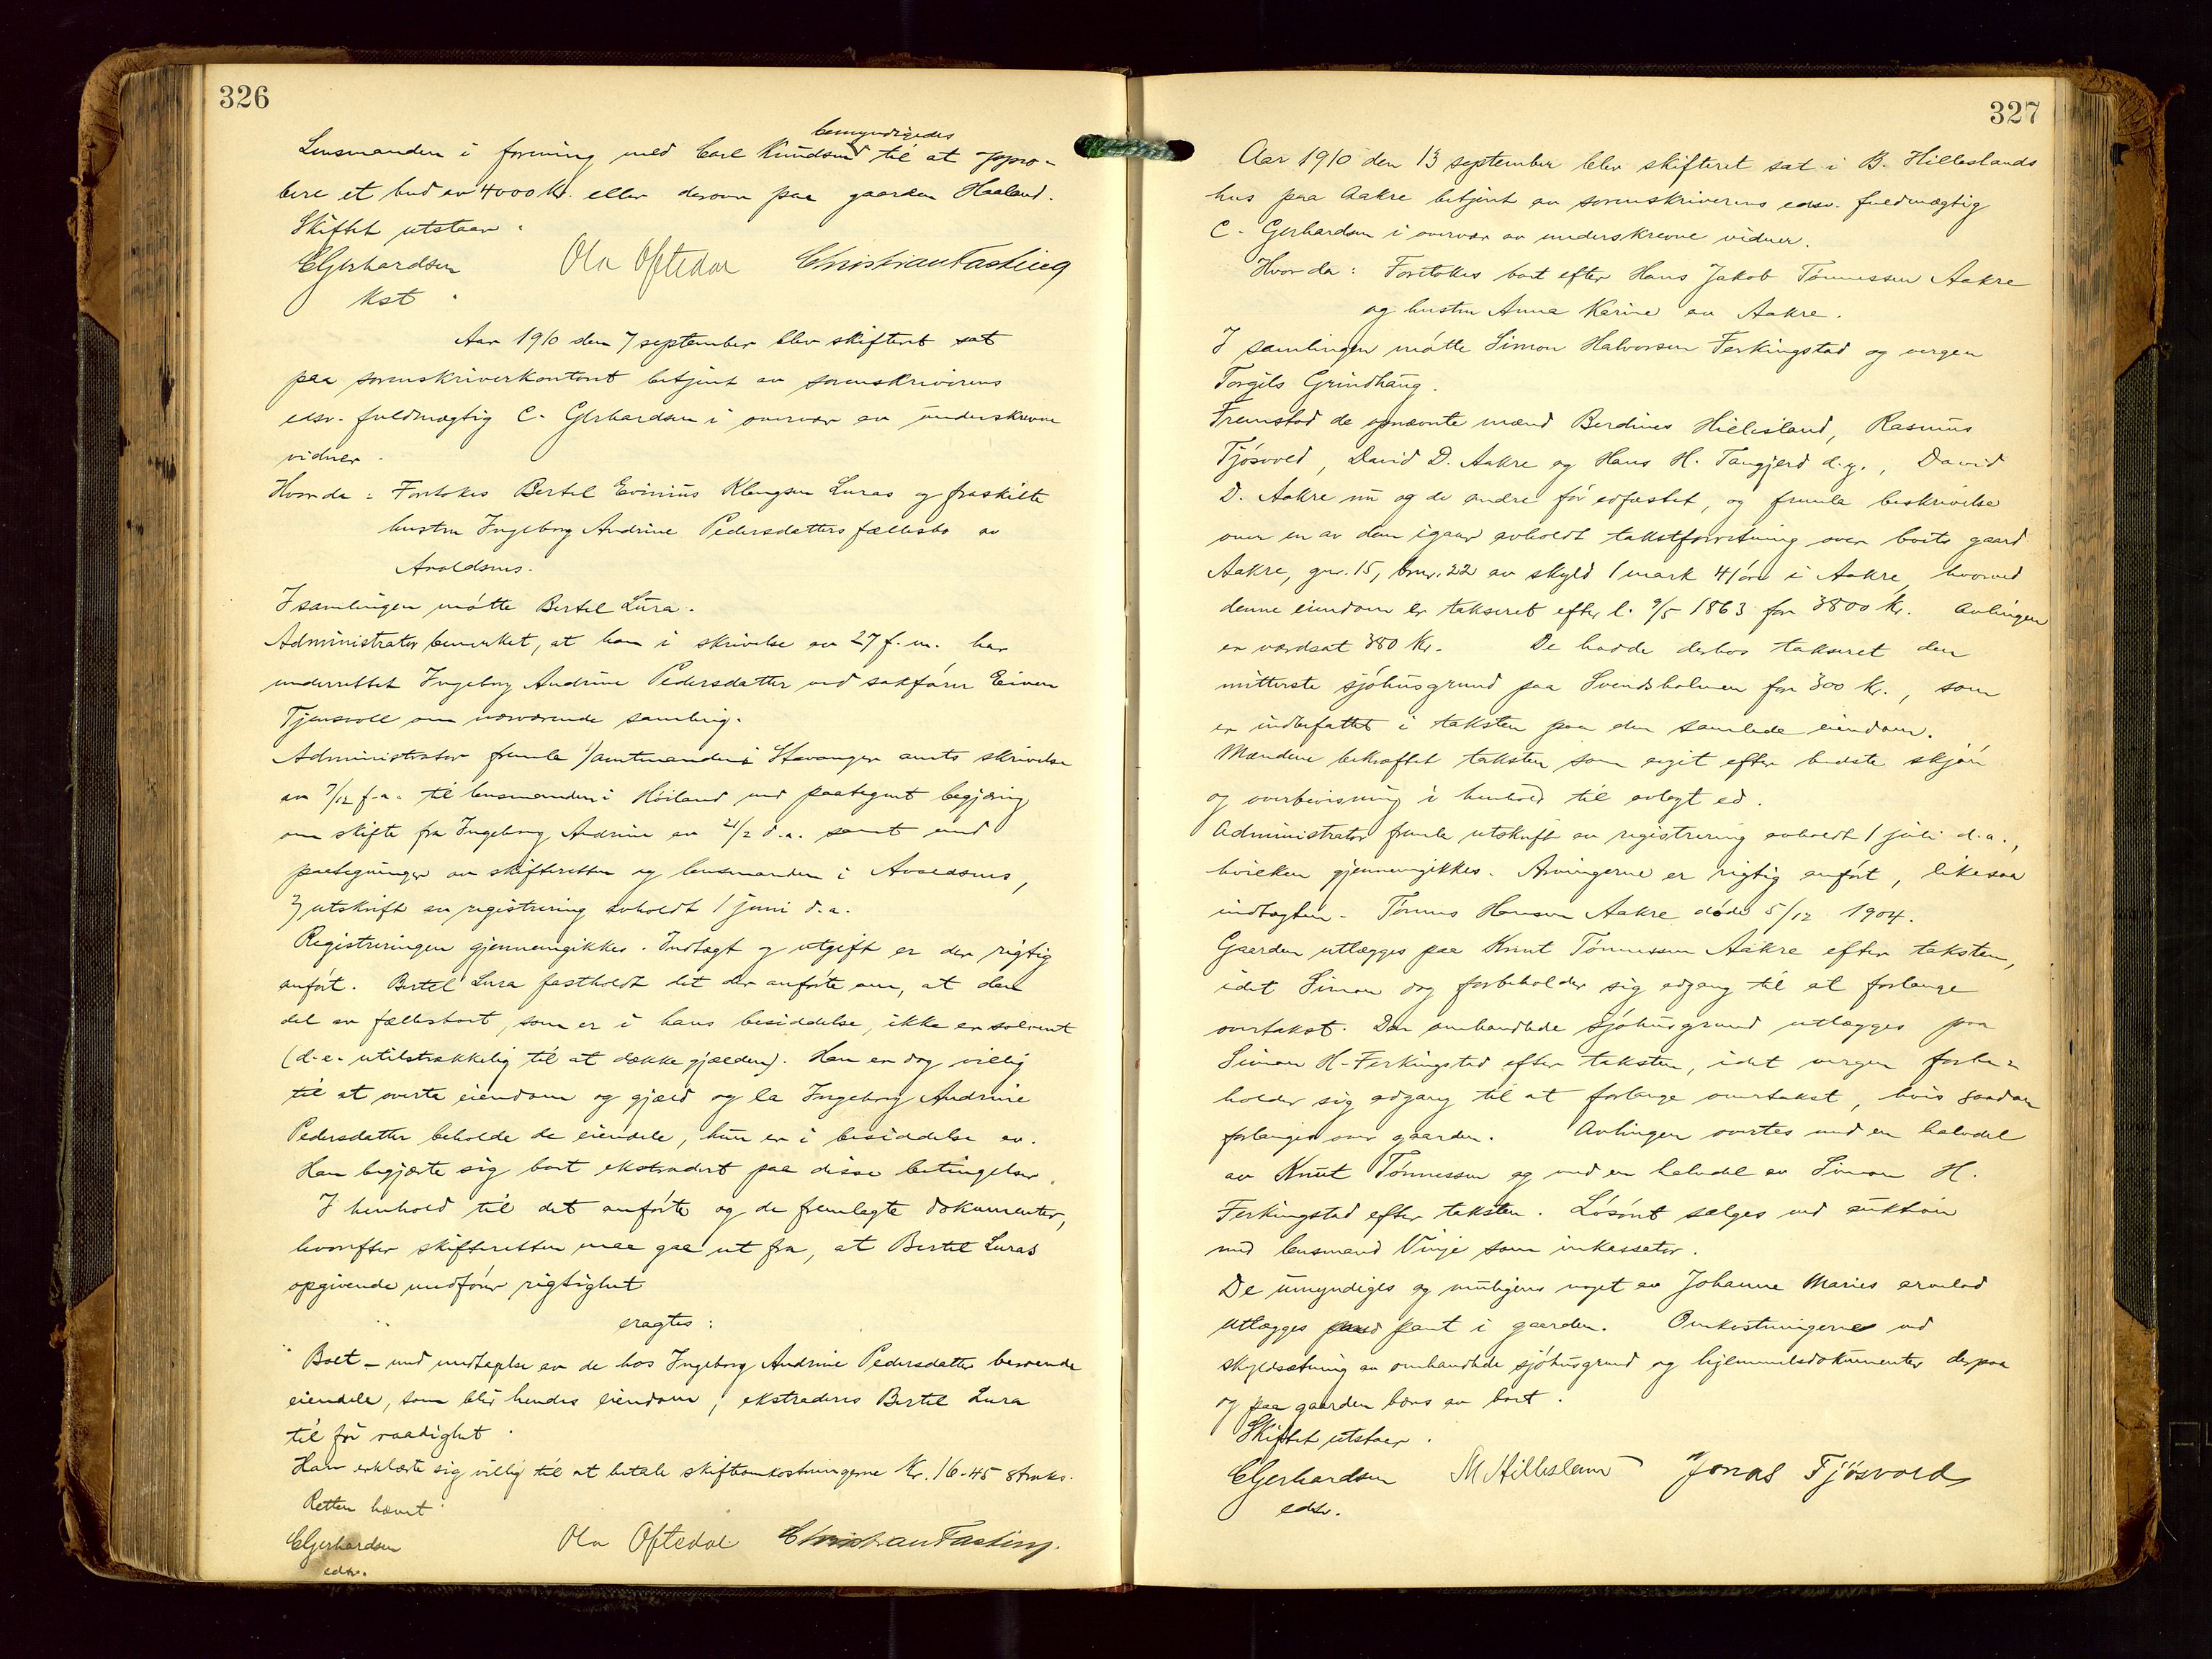 326
bemyndigedes
Lensmanden i forening med Carl Knudsen til at appro-
bere et bud av 4000 kr. eller derover paa gaarden Haaland.
Skiftet utstaar.
CGerhardsen Ola Oftedal Christian Fasting
kst.
Aar 1910 den 7 september blev skifteret sat
paa sorenskriverkontoret betjent av sorenskriverens
edsv. fuldmægtig C. Gerhardsen i overvær av underskrevne
vidner.
Hvorda: Foretokes Bertel Evinius Klengsen Luras og fraskilte
hustru Ingeborg Andrine Pedersdatters fællesbo av
Avaldsnes.
I samlingen møtte Bertel Lura.
Administrator bemerket, at han i skrivelse av 27 f.m. har
underrettet Ingeborg Andrine Pedersdatter ved sakfører Eiven
Tjensvoll om nærværende samling.
Administrator fremla 1/ amtmanden i Stavanger amts skrivelse
av 7/12 f.a. til lensmanden i Høiland med paategnet begjæring
om skifte fra Ingeborg Andrine av 21/2 d.a. samt med
paategninger av skifteretten og lensmanden i Avaldsnes,
2/ utskrift av registrering avholdt 1 juni d.a.
Registreringen gjennemgikkes. Indtægt og utgift er der rigtig
anført. Bertel Lura fastholdt det der anførte om, at den
del av fællesboet, som er i hans besiddelse, ikke er solvent
(d.e. utilstrækkelig til at dække gjælden). Han er dog villig
til at overta eiendom og gjæld og la Ingeborg Andrine
Pedersdatter beholde de eiendele, hun er i besiddelse av.
Han begjærte sig boet ekstradert paa disse betingelser.
I henhold til det anførte og de fremlagte dokumenter,
hvorefter skifteretten maa gaa ut fra, at Bertel Luras
opgivende medfører rigtighet
eragtes:
Boet – med undtagelse av de hos Ingeborg Andrine Pedersdatter beroende
eiendele, som blir hendes eiendom, ekstraderes Bertel Lura
til fri raadighet.
Han erklærte sig villig til at betale skifteomkostningerne kr. 16.45 straks.
Retten hævet.
CGerhardsen Ola Oftedal Christian Fasting.
edsv.
327
Aar 1910 den 13 september blev skifteret sat i B. Hilleslands
hus paa Aakre betjent av sorenskriverens edsv. fuldmægtig
C. Gerhardsen i overvær av underskrevne vidner.
Hvorda: Foretokes boet efter Hans Jakob Tønnessen Aakre
og hustru Anna Karine av Aakre.
I samlingen møtte Simon Halvorsen Ferkingstad og vergen
Torgils Grindhaug.
Fremstod de opnævnte mænd Berdines Hillesland, Rasmus
Tjøsvold, David D. Aakre og Hans H. Tangjerd d.y., David
D. Aakre nu og de andre før edfæstet, og fremla beskrivelse
over en av dem igaar avholdt takstforretning over boets gaard
Aakre, gnr. 15, bnr. 22 av skyld 1 mark 41 øre i Aakre, hvorved
denne eiendom er taksert efter l. 9/5 1863 for 3800 kr. Avlingen
er værdsat 380 kr. De hadde derhos taksert den
mitterste sjøhusgrund paa Svendsholmen for 300 kr., som
er indbefattet i taksten paa den samlede eiendom.
Mændene bekræftet taksten som avgit efter bedste skjøn
og overbevisning i henhold til avlagt ed.
Administrator fremla utskrift av registrering avholdt 1 juli d.a.,
hvilken gjennemgikkes. Arvingerne er rigtig anført, likesaa
indtægten. Tønnes Hansen Aakre døde 5/12 1904.
Gaarden utlægges paa Knut Tønnessen Aakre efter taksten,
idet Simon dog forbeholder sig adgang til at forlange
overtakst. Den omhandlede sjøhusgrund utlægges paa
Simon H. Ferkingstad efter taksten, idet vergen forbe-
holder sig adgang til at forlange overtakst, hvis saadan
forlanges over gaarden. Avlingen overtas med en halvdel
av Knut Tønnessen og med en halvdel av Simon H.
Ferkingstad efter taksten. Løsøret sælges ved auktion
med lensmand Vinje som inkassator.
De umyndiges og muligens noget av Johanne Maries arvelod
utlægges pant i gaarden. Omkostningerne ved
skyldsætning av omhandlede sjøhusgrund og hjemmelsdokumenter derpaa
og paa gaarden bæres av boet.
Skiftet utstaar.
CGerhardsen M Hillesland Jonas Tjøsvold
edsv.